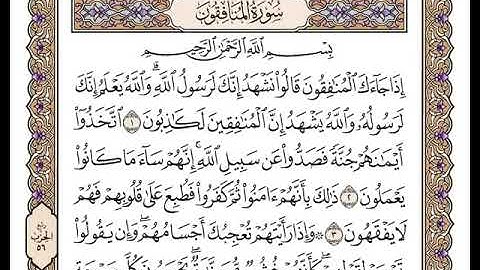 سُورَةُ المُنَافِقُونَ
بِسْمِ اللَّهِ الرَّحْمَٰنِ الرَّحِيمِ
إِذَا جَاءَكَ الْمُنَافِقُونَ قَالُوا نَشْهَدُ إِنَّكَ لَرَسُولُ اللَّهِ ۗ وَاللَّهُ يَعْلَمُ إِنَّكَ
لَرَسُولُهُ وَاللَّهُ يَشْهَدُ إِنَّ الْمُنَافِقِينَ لَكَاذِبُونَ ١ اتَّخَذُوا
أَيْمَانَهُمْ جُنَّةً فَصَدُّوا عَن سَبِيلِ اللَّهِ ۚ إِنَّهُمْ سَاءَ مَا كَانُوا
يَعْمَلُونَ ٢ ذَٰلِكَ بِأَنَّهُمْ آمَنُوا ثُمَّ كَفَرُوا فَطُبِعَ عَلَىٰ قُلُوبِهِمْ فَهُمْ
لَا يَفْقَهُونَ ٣ ۞ وَإِذَا رَأَيْتَهُمْ تُعْجِبُكَ أَجْسَامُهُمْ ۖ وَإِن يَقُولُوا
الحزب
٥٦